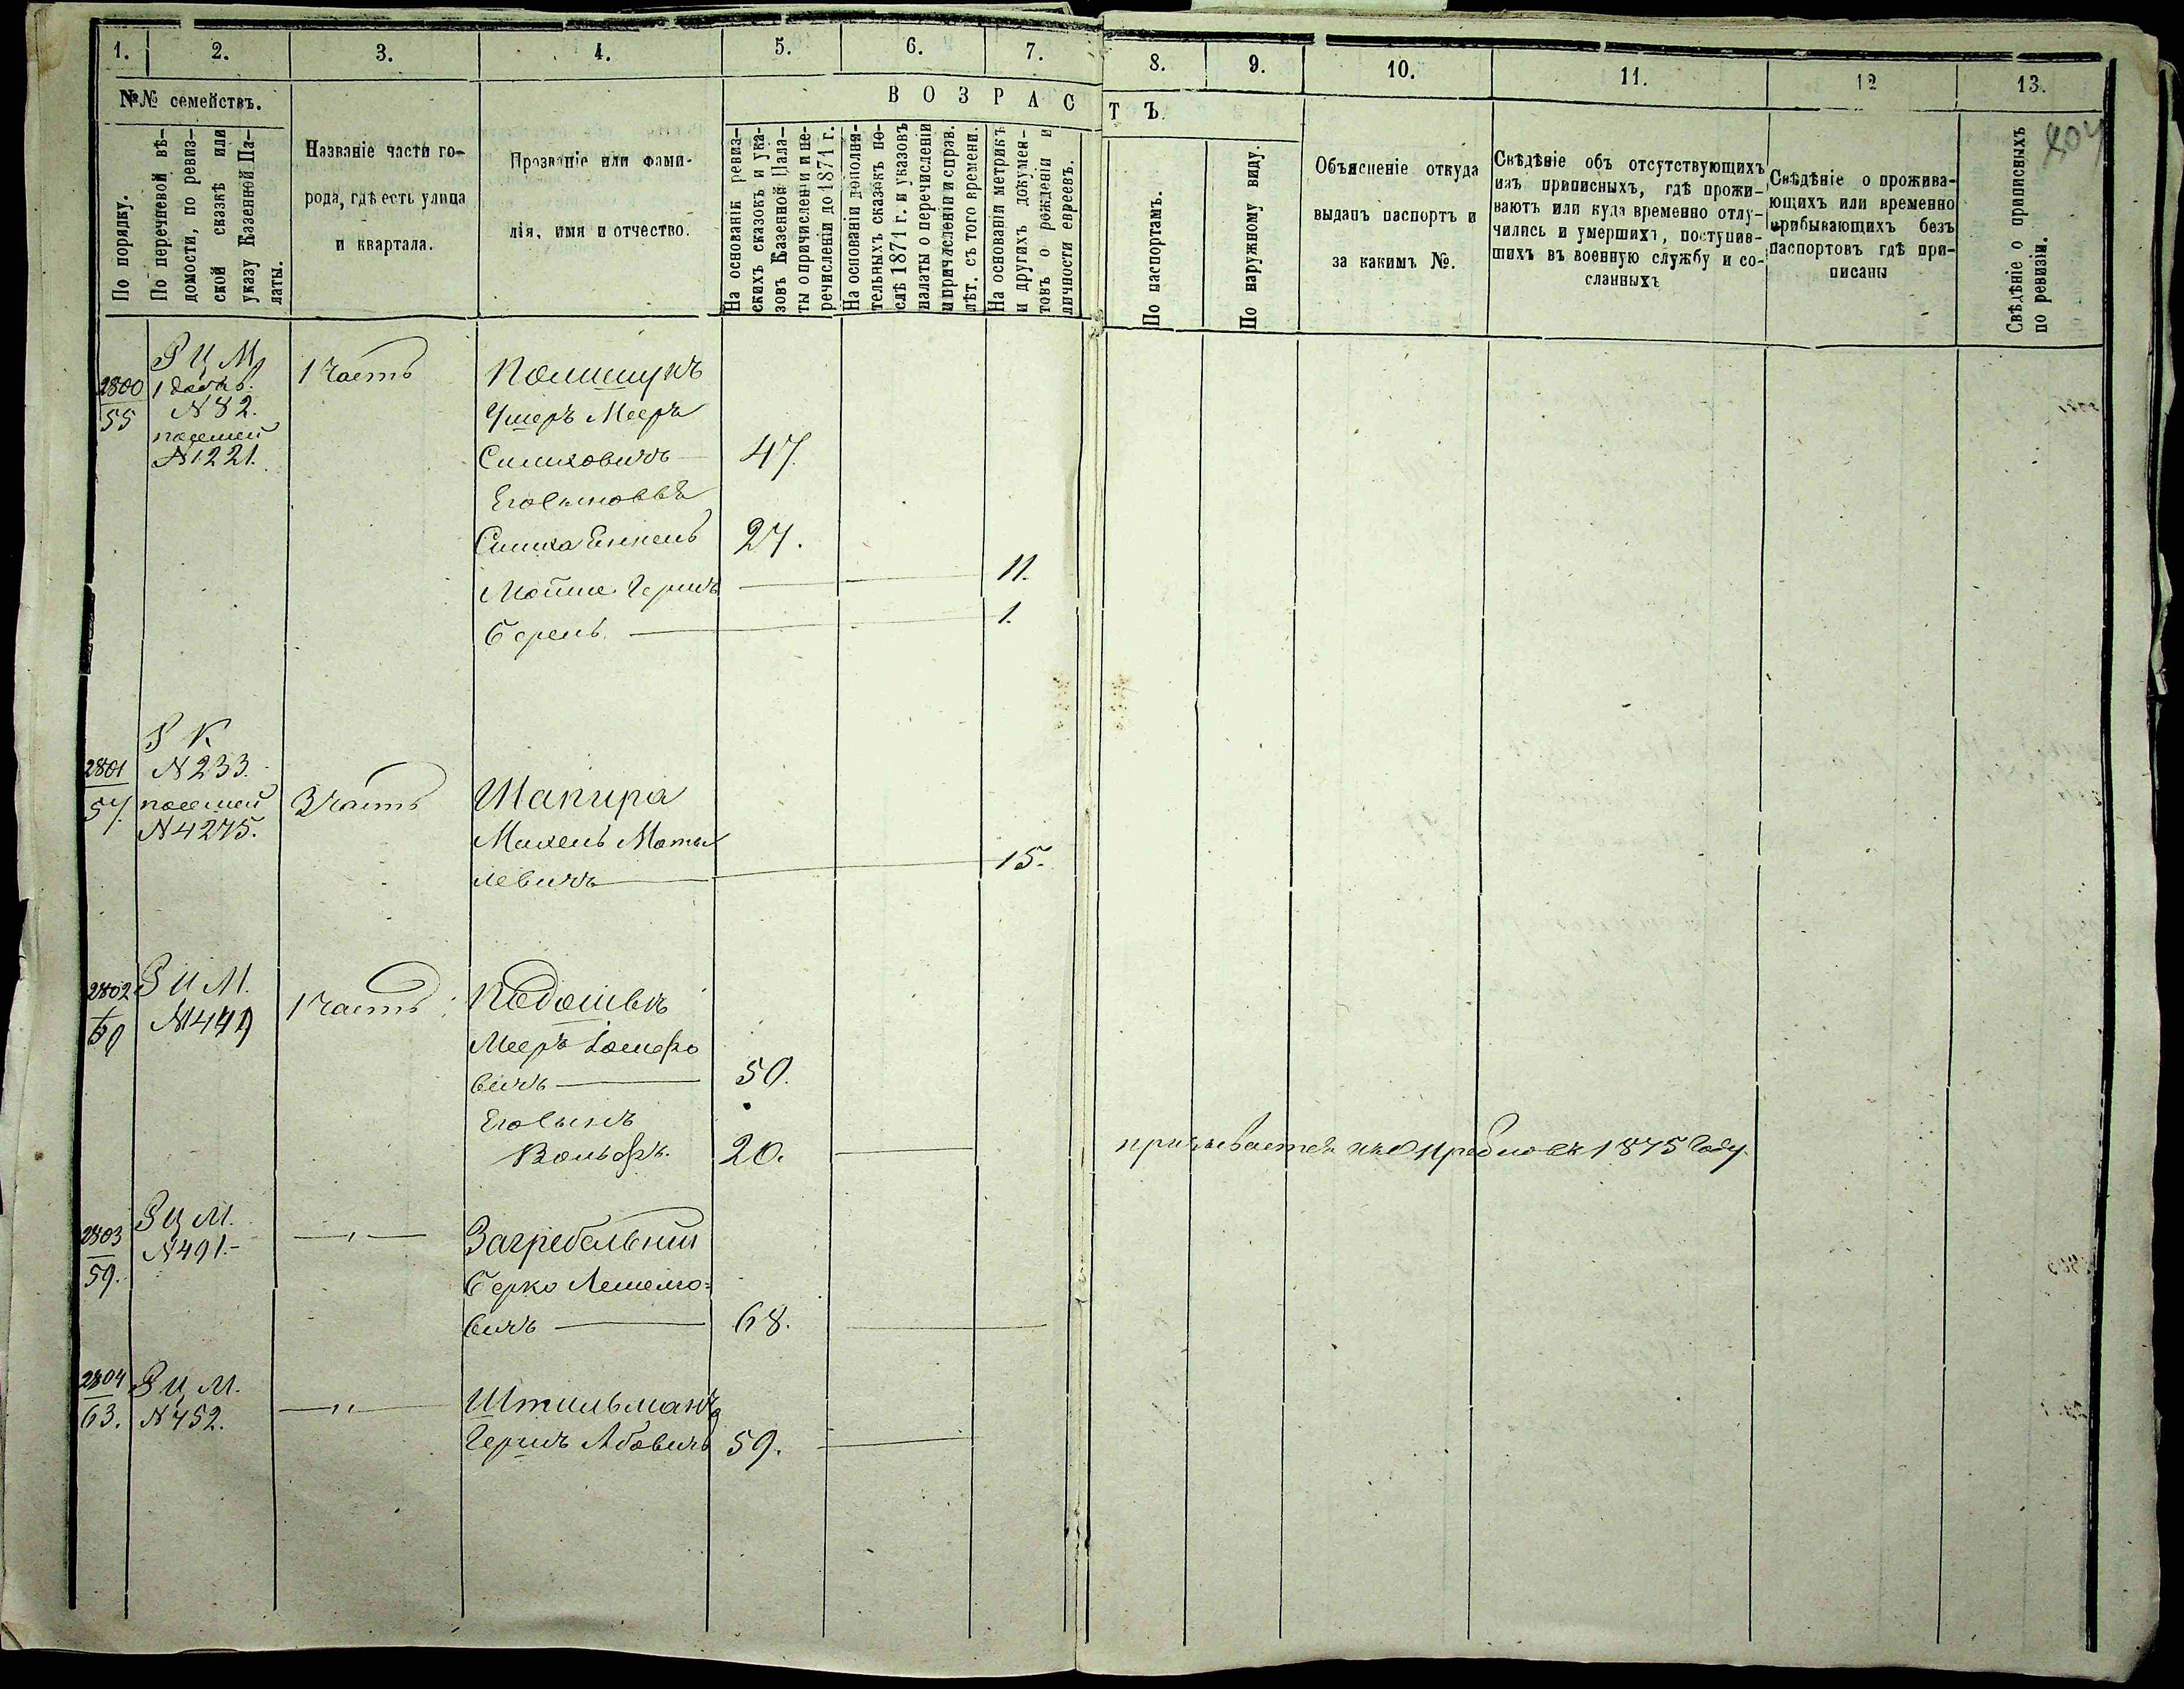 1. 2. 3. 4. 5. 6. 7. 8. 9. 10. 11. 12 13.
№№ семействъ.
В О З Р А С Т Ъ.
По порядку.
По перечневой вѣ-
домости, по ревиз-
ской сказкѣ или
указу Казенной Па-
латы.
Названіе части го-
рода, гдѣ есть улица
и квартала.
Прозваніе или фами-
лія, имя и отчество.
На основаніи ревиз-
скихъ сказокъ и ука-
зовъ Казенной Пала-
ты о причислени и пе-
речисленіи до 1871 г.
На основаніи дополни-
тельныхъ сказокъ по-
слѣ 1871 г. и указовъ
палаты о перечисленіи
и причисленіи и справ.
лѣт. съ того времени.
На основаніи метрикъ
и другихъ докумен-
товъ о рожденіи и
личности евреевъ.
По паспортамъ.
По наружному виду.
Объясненіе откуда
выданъ паспортъ и
за какимъ №.
Свѣдѣніе объ отсутствующихъ
изъ приписныхъ, гдѣ прожи-
ваютъ или куда временно отлу-
чились и умершихъ, поступив-
шихъ въ военную службу и со-
сланныхъ
Свѣдѣніе о прожива-
ющихъ или временно
прибывающихъ безъ
паспортовъ гдѣ при-
писаны
Свѣдѣніе о приписныхъ
по ревизіи.
2800
55
Р Ц М
N 82.
посемей
N 1221.
1 часть
Полищукъ
Умеръ Мееръ
Симховичъ 47.
Его Сыновья
Симха Енкель 27.
Мойше Гершъ 11.
Берель 1.
2801
57.
Р К
N 233.
посемей
N 4275.
3 часть
Шапира
Михель Моты
левичъ 15.
2802
Р Ц М.
1 часть
Мееръ
вичъ 50.
Его Сынъ
Вольфъ. 20.
1875 Году.
2803
59.
Р Ц М.
N 491.-
—"—
Загребельный
Берко
вичъ 68.
2804
63.
Р Ц М.
N 452.
—"—
Штильманъ
Гершъ Абовичъ 59.